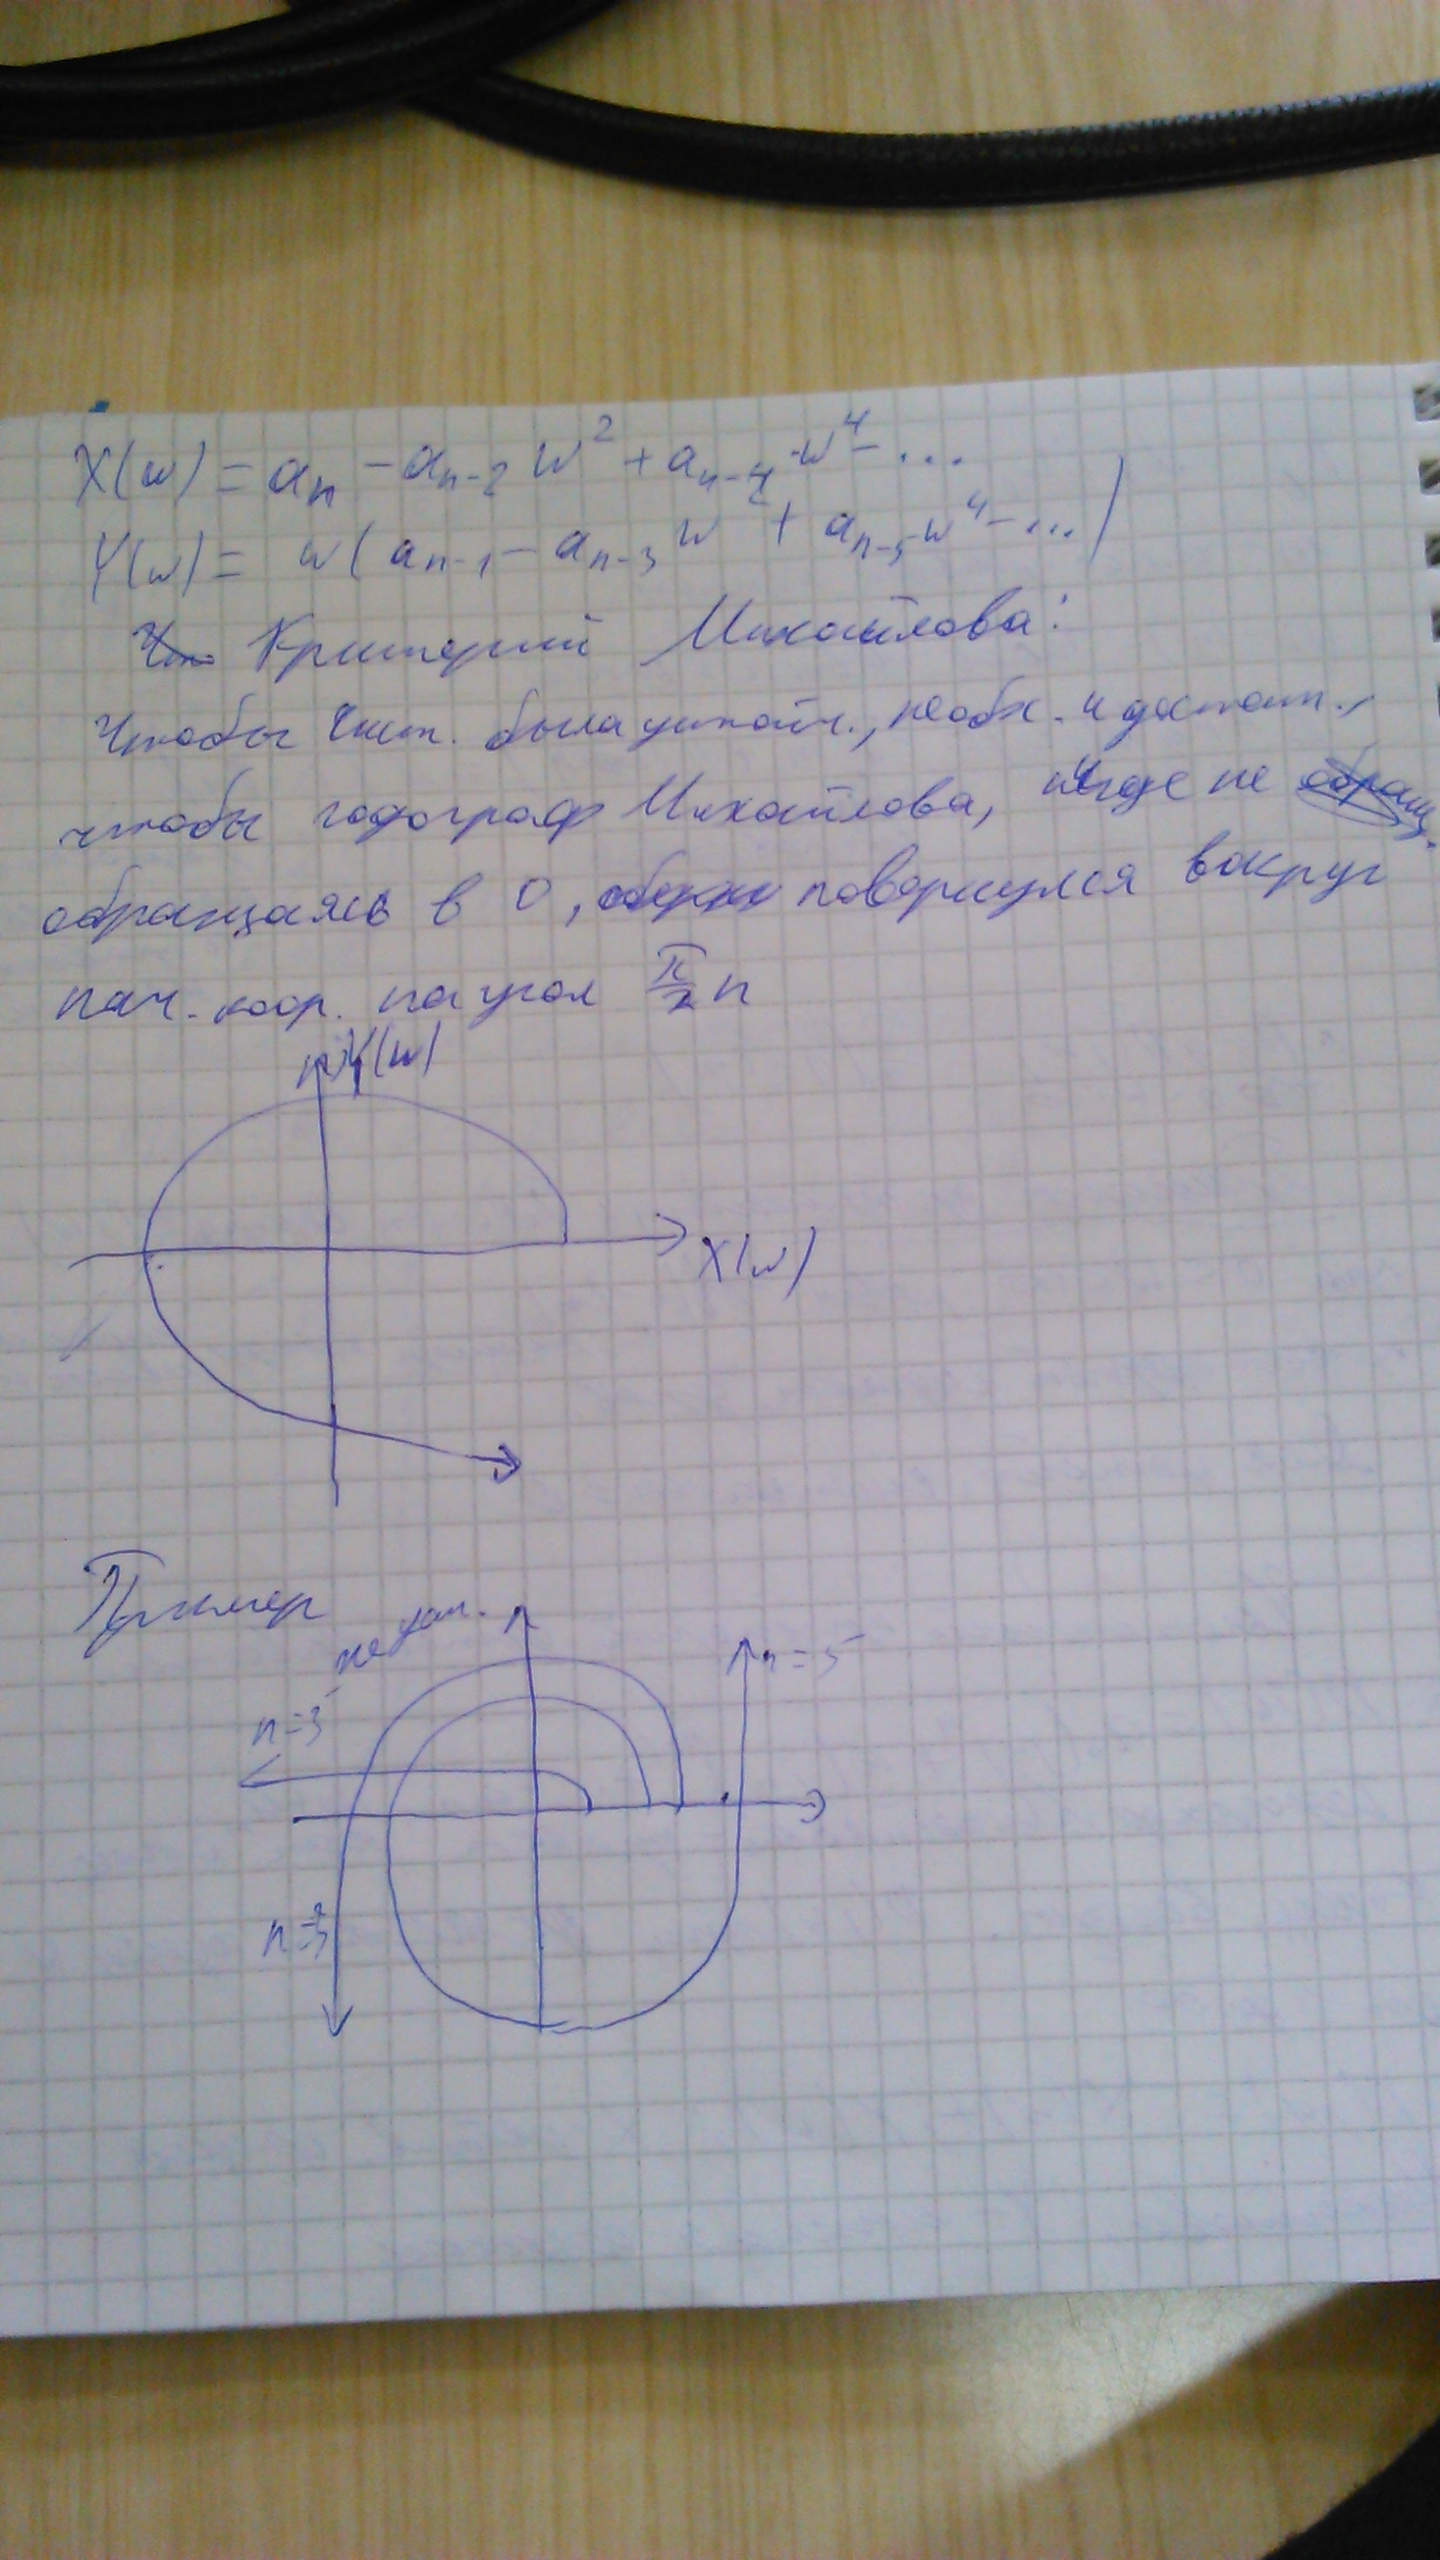 X(w) = aₙ - aₙ₋₂ w² + aₙ₋₄ · w⁴ - ...
Y(w) = w(aₙ₋₁ - aₙ₋₃ w² + aₙ₋₅ w⁴ - ...)
Критерий Михайлова:
Чтобы сист. была устойч., необх. и достат.,
чтобы годограф Михайлова, нигде не
обращаясь в 0, повернулся вокруг
нач. коор. на угол π/2 n
Y(w)
X(w)
Пример
не уст.
n=5
n=5
n=3